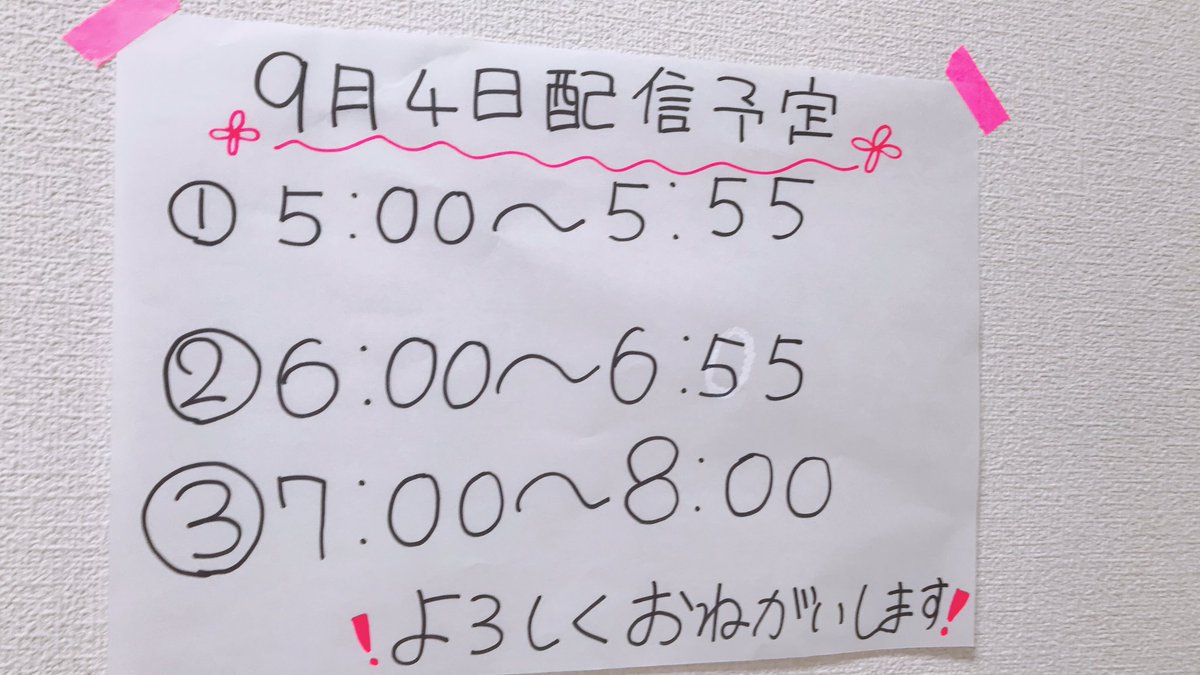 9月4日配信予定
① 5:00〜5:55
② 6:00〜6:55
③ 7:00〜8:00
!よろしくおねがいします!